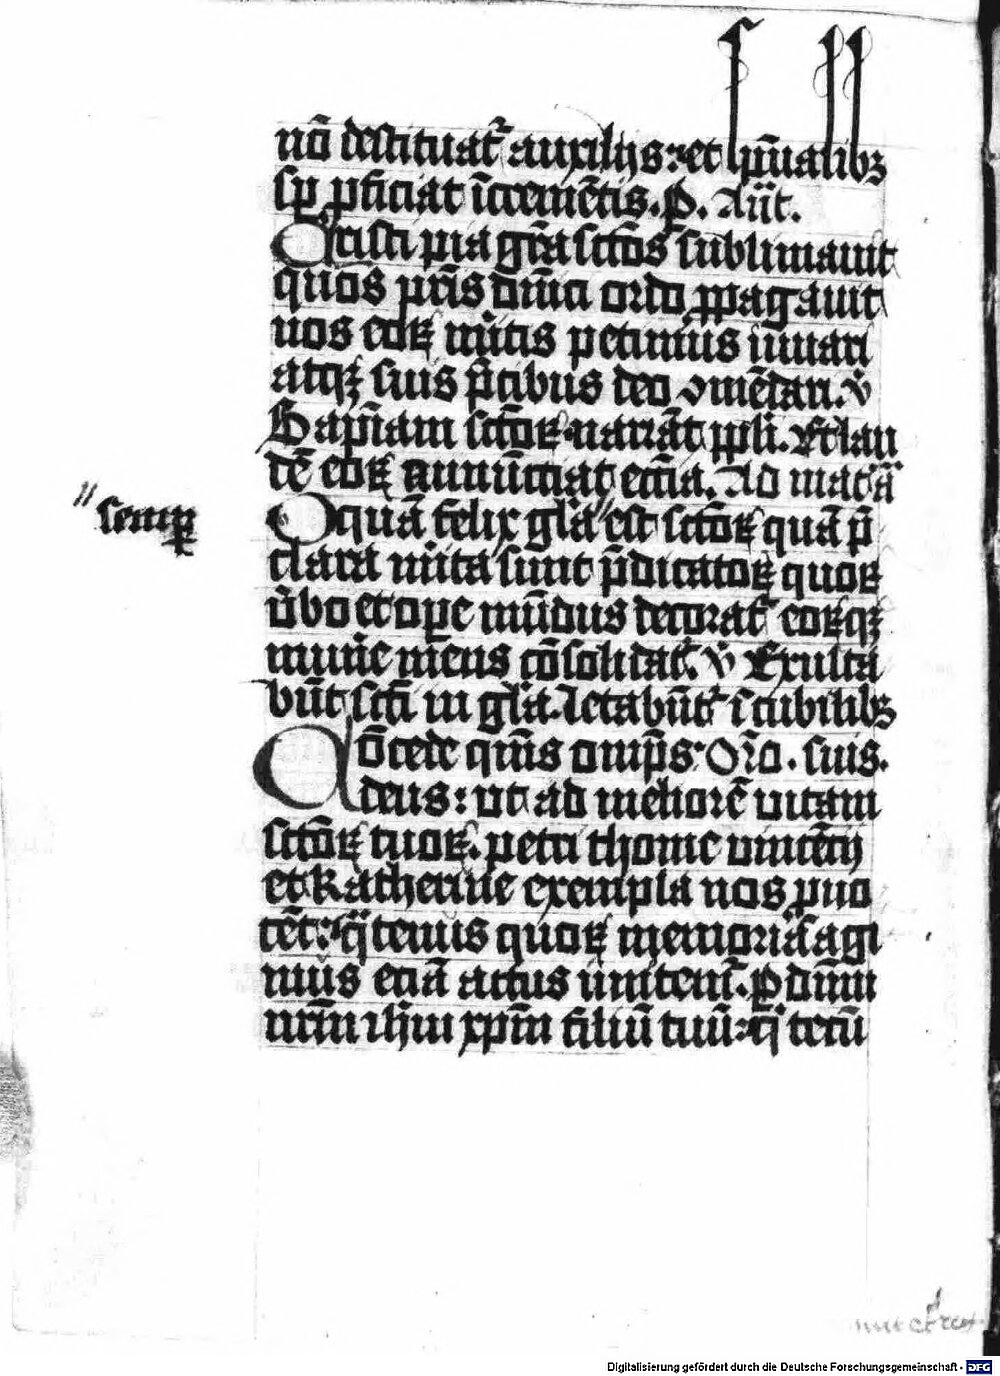 nō destituat᷑ auxilijs: et sp̄ualibꝫ
sꝑ ꝓficiat īcremētis. P. Añt.
Cristi pia gr̄a sctōs sublimauit
quos pr̄is dn̄ici ordo ꝓpagauit
nos eoꝝ mĩtis petimus iuuari
atqꝫ suis p̄cibus deo ꝯmēdari. v̄
Sapn̄iam sctōꝝ narrāt ppli. Et lau
dē eoꝝ annūctiat eccīa. Ad mat᷑ā
O quā felix gl̄ia " est sctōꝝ quā p̄
" semꝑ
clara mĩta sunt p̄dicatoꝝ quoꝝ
v̄bo et oꝑe mūdus decorat᷑ eoꝝqꝫ
munīe mens cōsolidat᷑. v̄ Exulta
būt sctī in gl̄ia. letabūt᷑ ī cubilibꝫ
Cōcede qm̄s omīps Oro. suis.
deus: ut ad meliorē uitam
sctōꝝ tuoꝝ. petri thome vincētij
et Katherine exempla nos ꝓuo
cēt: qͣtenus quoꝝ memoriā agi
mus eciā actus imitem᷑. P dn̄m
nr̄m ihm xp̄m filiū tuū: qͥ tecū
Digitalisierung gefördert durch die Deutsche Forschungsgemeinschaft - DFG